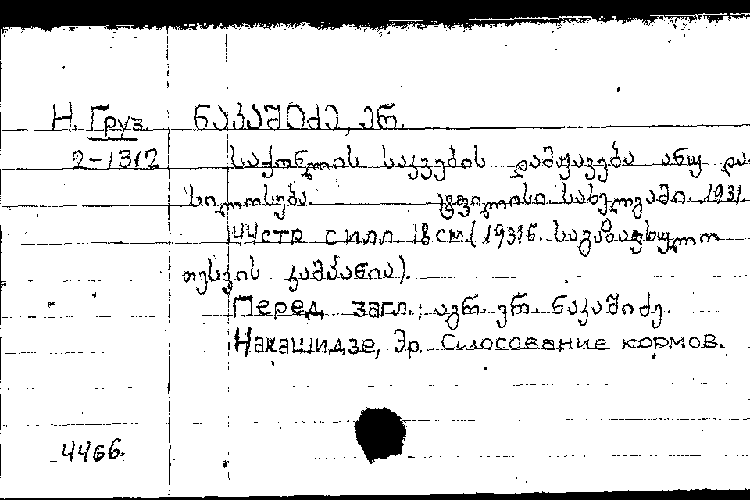 Н. Груз. ნაკაშიძე, ერ.
2-1312 საქონლის საკვების დამჟავება ანუ და
სილოსება. ტფილისი. სახელგამი. 1931.
44 стр. с илл. 18 см. (1931 წ. საგაზაფხულო
თესვის კამპანია).
Перед загл.: აგრ. ერ. ნაკაშიძე.
Накашидзе, Эр. Силосование кормов.
4466.